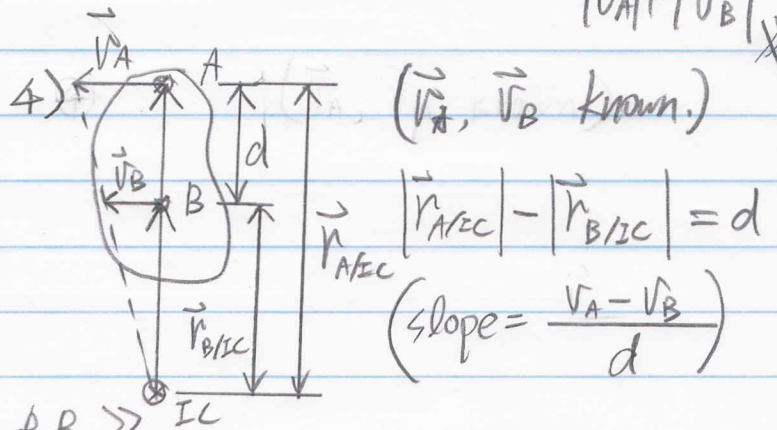 |v⃗_A| |v⃗_B|
4) v⃗_A A (v⃗_A, v⃗_B known.)
d
v⃗_B B |r⃗_A/IC| - |r⃗_B/IC| = d
r⃗_A/IC
r⃗_B/IC (slope = (v_A - v_B)/d)
IC